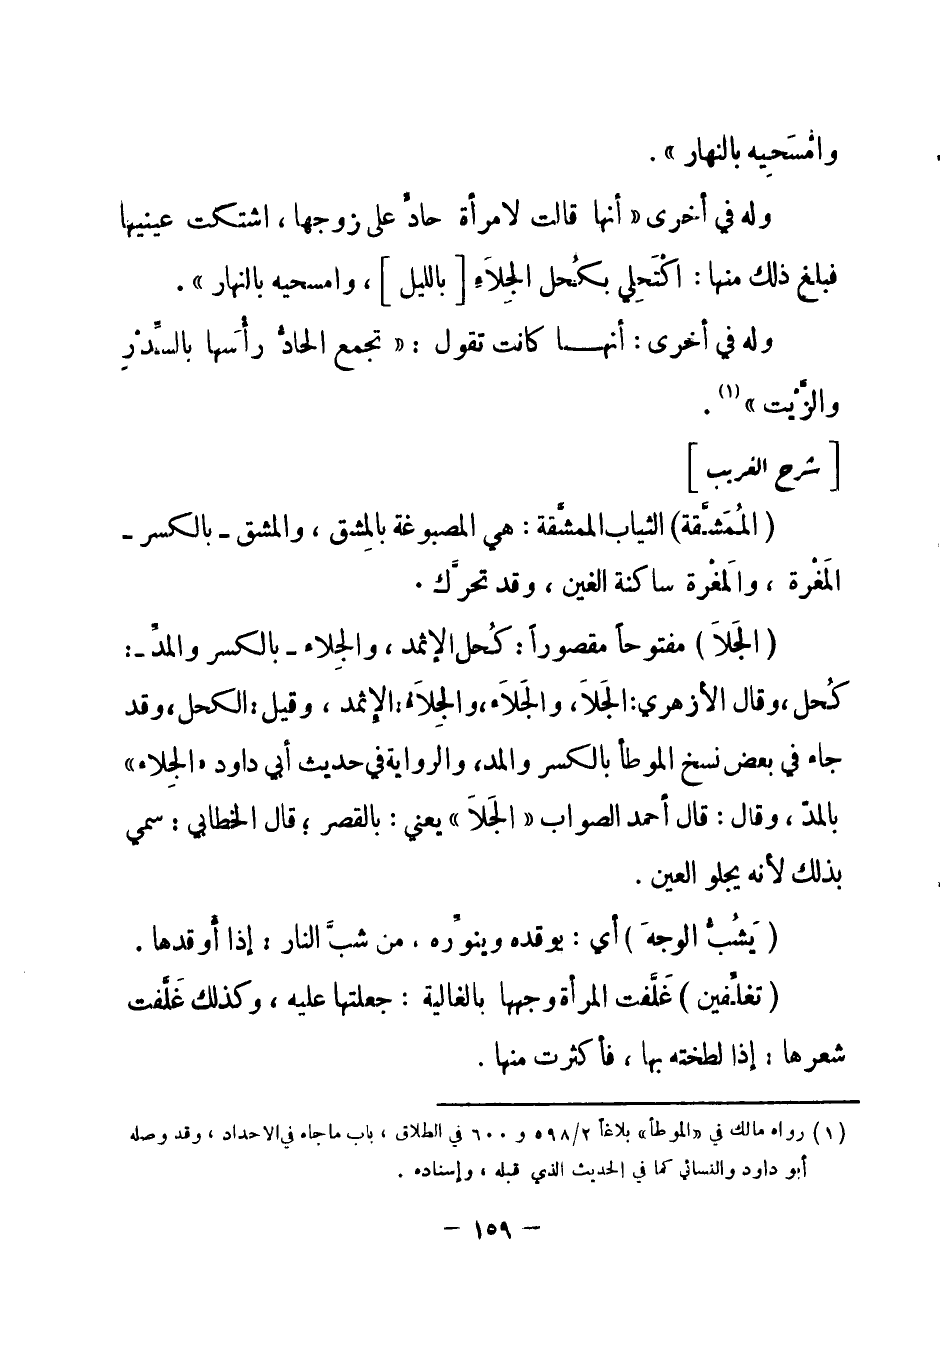 وامْسَحِيه بالنهار » .
وله في أخرى « أنها قالت لامرأة حادٌّ على زوجها ، اشتكت عينيها
فبلغ ذلك منها : اكْتَحِلي بكُحل الجِلاَءِ [ بالليل ] ، وامسحيه بالنهار » .
وله في أخرى : أنهـــا كانت تقول : « تجمع الحادُّ رأْسَها بالسِّدْرِ
والزَّيْت » (١) .
[ شرح الغريب ]
( المُمَشَّقة) الثياب الممشَّقة : هي المصبوغة بالمِشق ، والمشق ـ بالكسر ـ
المَغْرة ، والمَغْرة ساكنة الغين ، وقد تحرَّك .
( الجَلاَ ) مفتوحاً مقصوراً : كُحل الإثمد ، والجِلاء ـ بالكسر والمدِّ ـ :
كُحل ، وقال الأزهري: الجَلاَ ، والجَلاَء ، والجِلاَءُ : الإثمد ، وقيل : الكحل ، وقد
جاء في بعض نسخ الموطأ بالكسر والمد، والرواية في حديث أبي داود «الجِلاء»
بالمدّ ، وقال : قال أحمد الصواب « الجَلاَ » يعني : بالقصر ؛ قال الخطابي : سمي
بذلك لأنه يجلو العين .
( يَشُبُّ الوجهَ ) أي : يوقده وينوِّره ، من شبَّ النار : إذا أوقدها .
( تغلِّفين ) غَلَّفت المرأة وجهها بالغالية : جعلتها عليه ، وكذلك غَلَّفت
شعرها : إذا لطخته بها ، فأكثرت منها .
(١) رواه مالك في «الموطأ» بلاغاً ٥٩٨/٢ و ٦٠٠ في الطلاق ، باب ماجاء في الاحداد ، وقد وصله
أبو داود والنسائي كما في الحديث الذي قبله ، وإسناده .
– ١٥٩ –